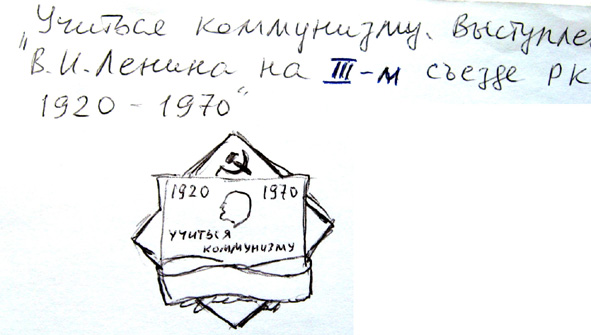 „Учиться коммунизму. Выступле
В.И.Ленина на III-м съезде РК
1920 - 1970“
1920 1970
УЧИТЬСЯ
КОММУНИЗМУ